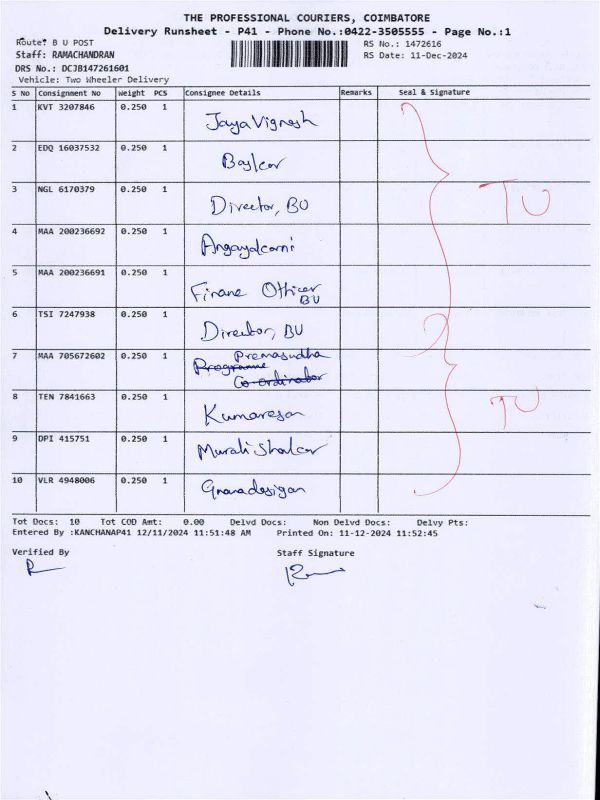 THE PROFESSIONAL COURIERS, COIMBATORE
Delivery Runsheet - P41 - Phone No.:0422-3505555 - Page No.:1
Route: B U POST
RS No.: 1472616
Staff: RAMACHANDRAN
RS Date: 11-Dec-2024
DRS No.: DCJB147261601
Vehicle: Two Wheeler Delivery
S No Consignment No Weight PCS Consignee Details Remarks Seal & Signature
1 KVT 3207846 0.250 1 JayaVignesh
2 EDQ 16037532 0.250 1 Baskar
3 NGL 6170379 0.250 1 Director, BU
TU
4 MAA 200236692 0.250 1 Angayalcarni
5 MAA 200236691 0.250 1 Finane Officer
BU
6 TSI 7247938 0.250 1 Director, BU
7 MAA 705672602 0.250 1 Premasudha
Programme
Co-ordinator
8 TEN 7841663 0.250 1 Kumaresan
TU
9 DPI 415751 0.250 1
10 VLR 4948006 0.250 1 Gnanadesigan
Tot Docs: 10 Tot COD Amt: 0.00 Delvd Docs: Non Delvd Docs: Delvy Pts:
Entered By :KANCHANAP41 12/11/2024 11:51:48 AM Printed On: 11-12-2024 11:52:45
Verified By Staff Signature